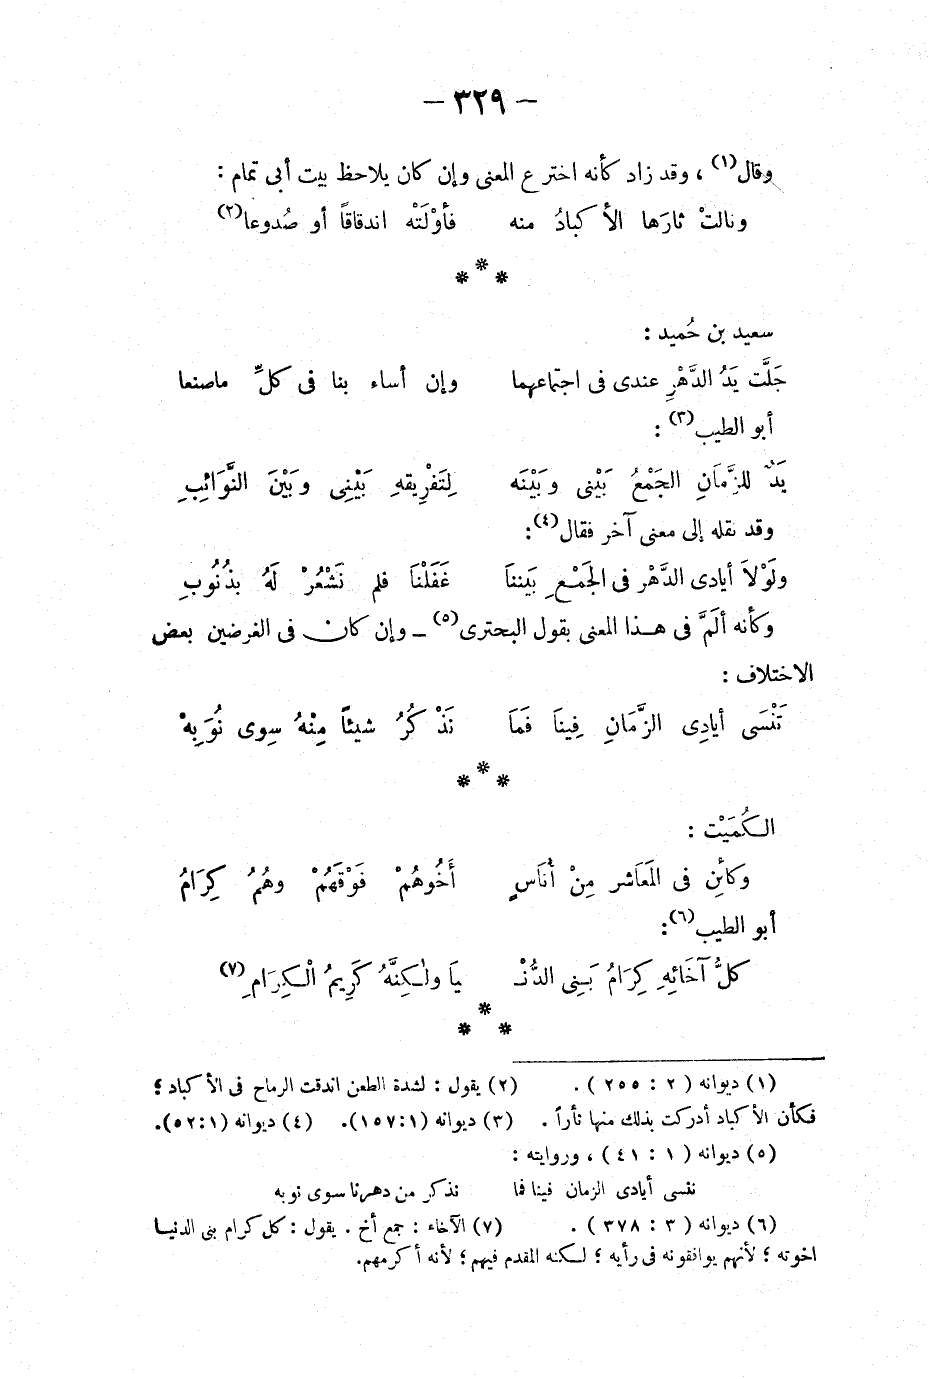 — ٣٢٩ —
وقال(١) ، وقد زاد كأنه اخترع المعنى وإن كان يلاحظ بيت أبى تمام :
ونالتْ ثارَها الأكبادُ منه فأوْلَتْه اندقاقاً أو صُدوعا(٢)
* * *
سعيد بن حُميد :
جَلَّت يَدُ الدَّهْرِ عندى فى اجتماعهما وإن أساء بنا فى كلِّ ماصنعا
أبو الطيب(٣) :
يَدٌ للزَّمانِ الجَمْعُ بَيْنى وبَيْنَه لِتَفْرِيقهِ بَيْنِى وبَيْنَ النَّوَائِبِ
وقد نقله إلى معنى آخر فقال(٤) :
ولَوْلاَ أيادى الدَّهْر فى الجَمْعِ بَيننَا غَفَلْنَا فلم نَشْعُرْ لَهُ بذُنُوبِ
وكأنه ألَمَّ فى هذا المعنى بقول البحترى(٥) ـ وإن كان فى الغرضين بعض
الاختلاف :
تَنْسَى أيادِى الزَّمَانِ فِينَا فَمَا نَذْكُرُ شيئاً مِنْهُ سِوى نُوَبِهْ
* * *
الكُمَيْت :
وكائِن فى المَعَاشر مِنْ أُنَاسٍ أَخُوهُمْ فَوْقَهُمْ وهُمُ كِرَامُ
أبو الطيب(٦) :
كلُّ آخَائِهِ كِرَامُ بَنِى الدُّنْـ ـيَا ولٰكِنَّهُ كَرِيمُ الْكِرَامِ(٧)
* * *
(١) ديوانه ( ٢ : ٢٥٥ ) . (٢) يقول : لشدة الطعن اندقت الرماح فى الأكباد ؛
فكأن الأكباد أدركت بذلك منها ثأراً . (٣) ديوانه (١:١٥٧). (٤) ديوانه (١:٥٢).
(٥) ديوانه ( ١ : ٤١ ) ، وروايته :
ننسى أيادى الزمان فينا فما نذكر من دهرنا سوى نوبه
(٦) ديوانه ( ٣ : ٣٧٨ ) . (٧) الآخاء : جمع أخ . يقول : كل كرام بنى الدنيا
اخوته ؛ لأنهم يوافقونه فى رأيه ؛ لكنه المقدم فيهم ؛ لأنه أكرمهم.